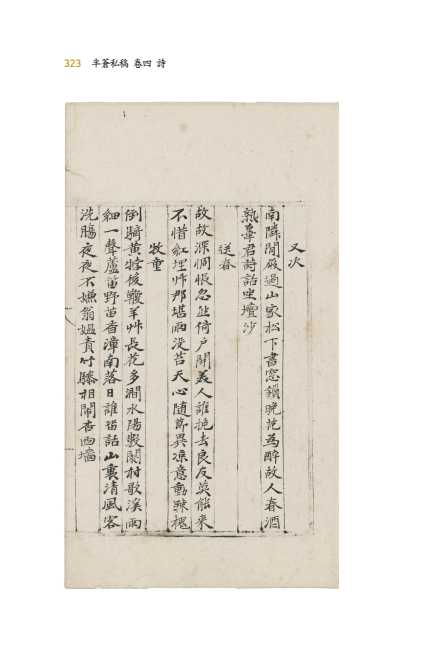 323 半蒼私稿 卷四 詩
又次
南隣閒厰過山家松下書窓鎖晩花爲醉故人春酒
熟辜君詩話坐壇沙
送春
故故深惆悵忽並倚戶開美人誰挽去良友莫能來
不惜紅埋艸那堪雨沒苔天心隨節異凉意動踈槐
牧童
倒騎黃犢後鞭羊艸長花多澗水陽數関村歌溪雨
細一聲蘆笛野苗香漳南落日誰留話山裏清風客
洗膓夜夜不嫌翁媼責竹騰相鬧杏西墻